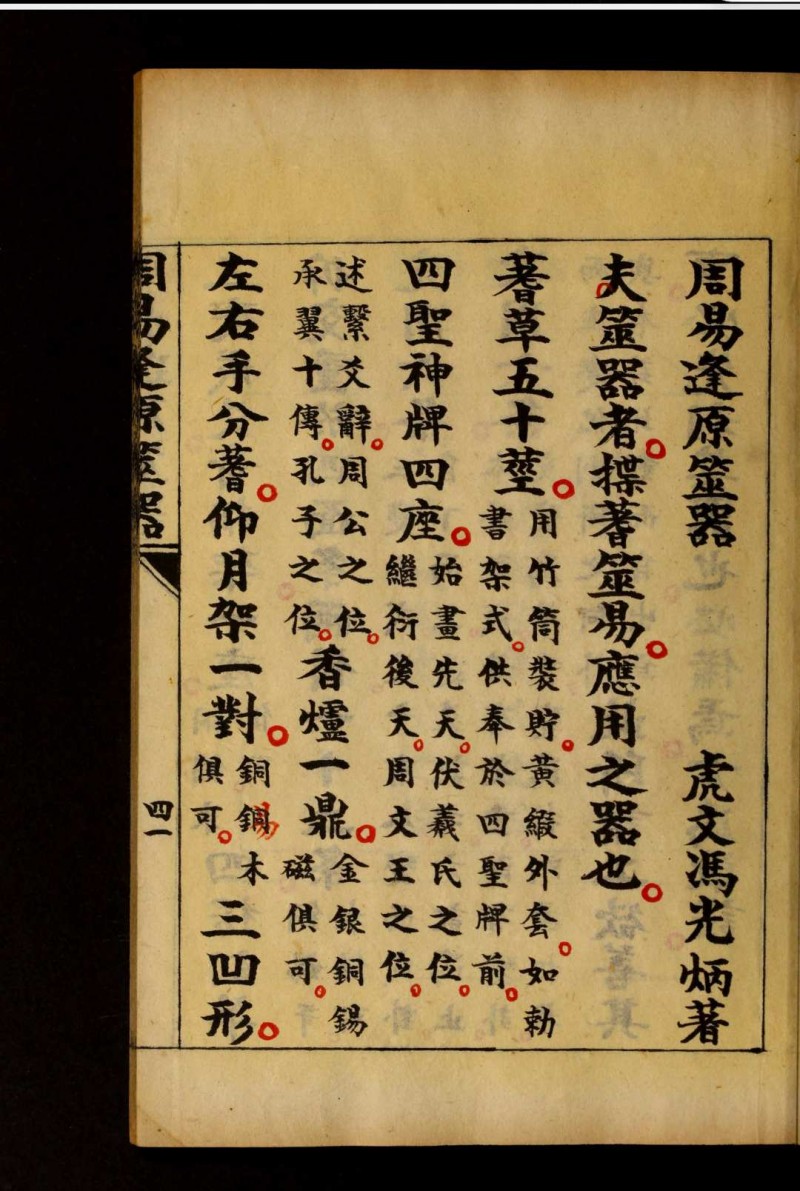 周易逢原筮器　虎文馮光炳著
夫筮器者。揲蓍筮易。應用之器也。
蓍草五十莖。
用竹筒裝貯。黃緞外套。如勅
書架式。供奉於四聖牌前。
四聖神牌四座。
始畫先天。伏羲氏之位。
繼衍後天。周文王之位。
述繫爻辭。周公之位。
承翼十傳。孔子之位。
香爐一鼎。
金銀銅錫
磁俱可。
左右手分蓍。仰月架一對。
銅錫木
俱可。
三凹形。
周易逢原筮器
四一